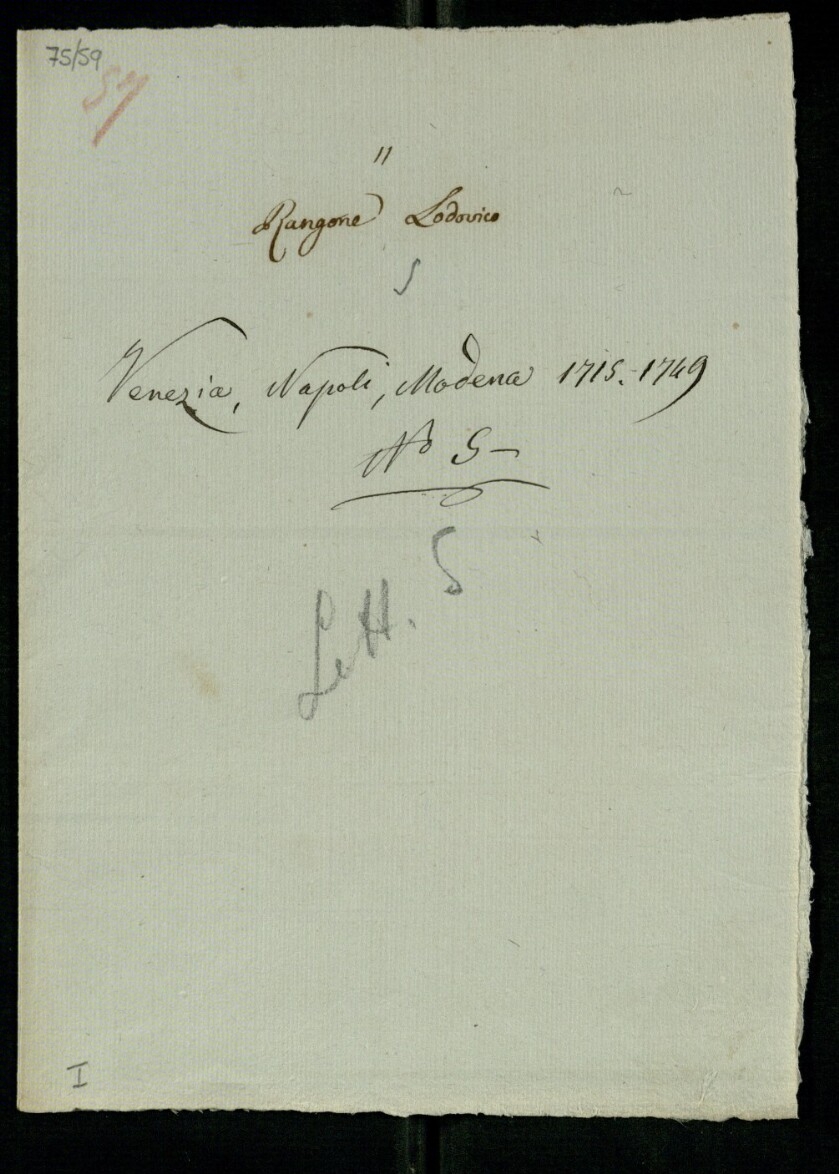 75/59
57
"
Rangone Lodovico
5
Venezia, Napoli, Modena 1715.-1749
No 5-
Lett. 5
I